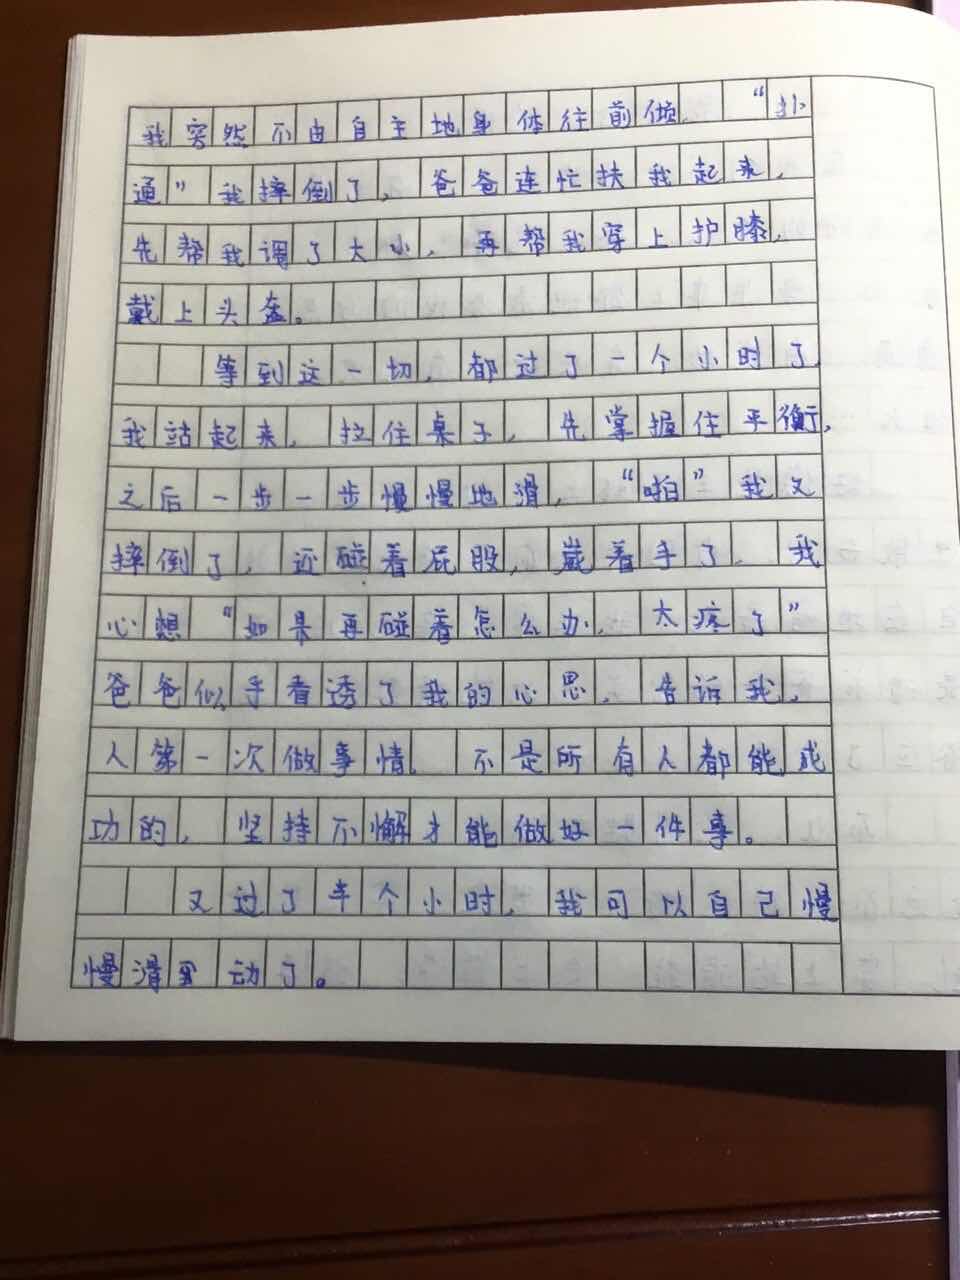 我突然不由自主地身体往前倾，“扑
通”我摔倒了，爸爸连忙扶我起来，
先帮我调了大小，再帮我穿上护膝，
戴上头盔。
等到这一切，都过了一个小时了，
我站起来，拉住桌子，先掌握住平衡，
之后一步一步慢慢地滑，“啪”我又
摔倒了，还碰着屁股，崴着手了，我
心想“如果再碰着怎么办，太疼了”
爸爸似乎看透了我的心思，告诉我，
人第一次做事情，不是所有人都能成
功的，坚持不懈才能做好一件事。
又过了半个小时，我可以自己慢
慢滑 动了。